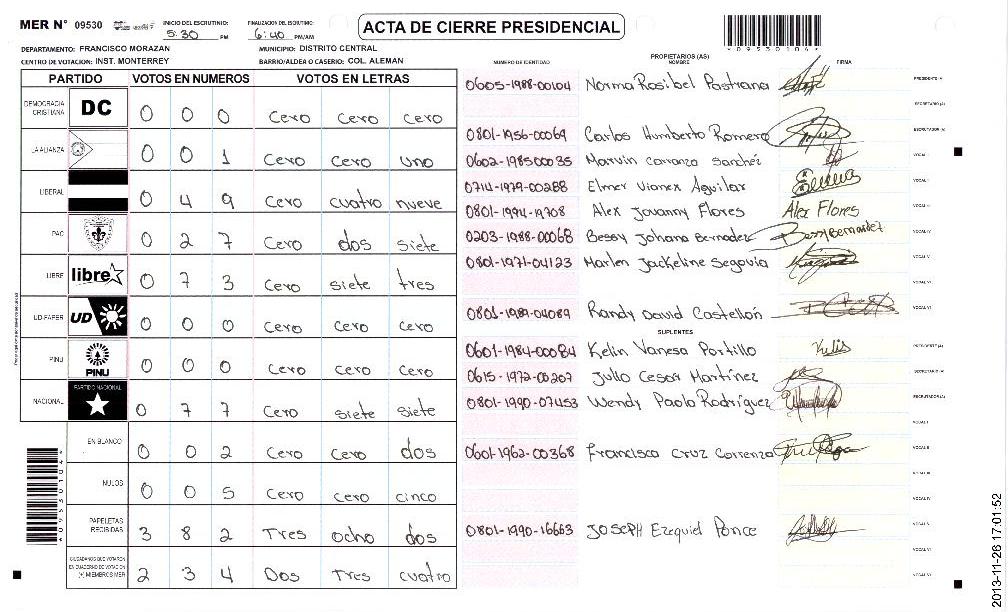 MER N° 09530
INICIO DEL ESCRUTINIO: 5:30 PM
FINALIZACION DEL ESCRUTINIO: 6:40 PM/AM
ACTA DE CIERRE PRESIDENCIAL
095301046
DEPARTAMENTO: FRANCISCO MORAZAN
MUNICIPIO: DISTRITO CENTRAL
CENTRO DE VOTACION: INST. MONTERREY
BARRIO/ALDEA O CASERIO: COL. ALEMAN
PARTIDO VOTOS EN NUMEROS VOTOS EN LETRAS
DEMOCRACIA CRISTIANA DC 0 0 0 Cero Cero Cero
LA ALIANZA 0 0 1 Cero Cero uno
LIBERAL 0 4 9 Cero cuatro nueve
PAC 0 2 7 Cero dos siete
LIBRE libre 0 7 3 Cero siete tres
UD-FAPER UD 0 0 0 Cero Cero Cero
PINU PINU 0 0 0 Cero Cero Cero
NACIONAL PARTIDO NACIONAL 0 7 7 Cero siete siete
EN BLANCO 0 0 2 Cero Cero dos
NULOS 0 0 5 Cero Cero cinco
PAPELETAS RECIBIDAS 3 8 2 Tres ocho dos
CIUDADANOS QUE VOTARON EN CUADERNO DE VOTACION (+) MIEMBROS MER 2 3 4 Dos Tres cuatro
NUMERO DE IDENTIDAD PROPIETARIOS (AS) NOMBRE FIRMA
0605-1988-00104 Norma Rosibel Pastrana PRESIDENTE (A)
SECRETARIO (A)
0801-1956-00069 Carlos Humberto Romero ESCRUTADOR (A)
0602-1985-00035 Marvin Carranza Sanchez VOCAL I
0714-1979-00288 Elmer Vianex Aguilar
0801-1994-19708 Alex Jovanny Flores Alex Flores
0203-1988-00068 Bessy Johana Bernadez Bessy Bernardez VOCAL IV
0801-1971-04123 Marlen Jackeline Segovia VOCAL V
0801-1989-04089 Randy David Castellón VOCAL VI
SUPLENTES
0601-1984-00084 Kelin Vanesa Portillo Kelis PRESIDENTE (A)
0615-1972-00207 Julio Cesar Martínez SECRETARIO (A)
0801-1990-07453 Wendy Paola Rodríguez ESCRUTADOR (A)
VOCAL I
0601-1962-00368 Francisca Cruz Correnza VOCAL II
VOCAL III
VOCAL IV
0801-1990-16663 JOSEPH Ezequiel Ponce VOCAL V
VOCAL VI
2013-11-26 17:01:52